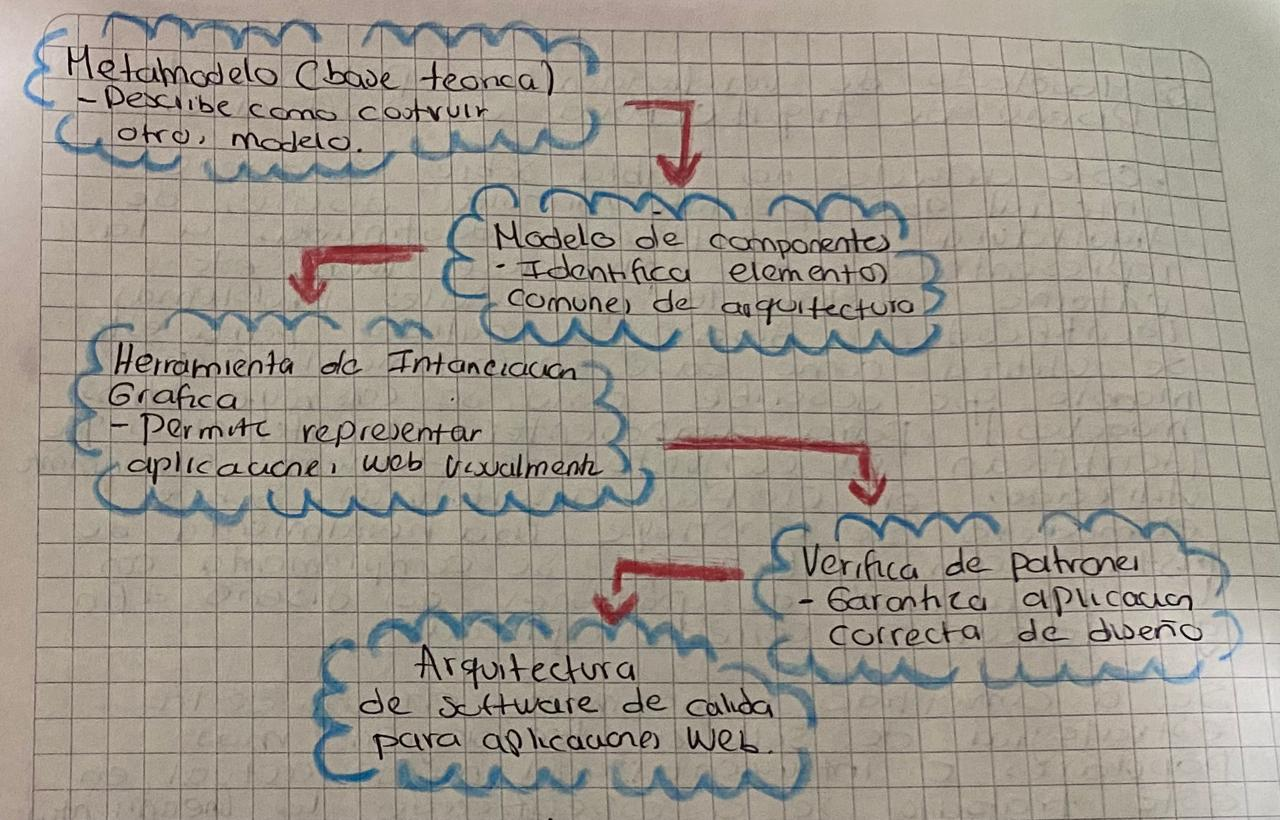 Metamodelo (base teorica)
- Describe como costruir
otros modelo.
Modelo de componentes
- Identifica elementos
comunes de arquitectura
Herramienta de Intanciacion
Grafica
- Permite representar
aplicaciones web visualmente
Verifica de patrones
- Garantiza aplicacion
correcta de diseño
Arquitectura
de software de calida
para aplicaciones Web.